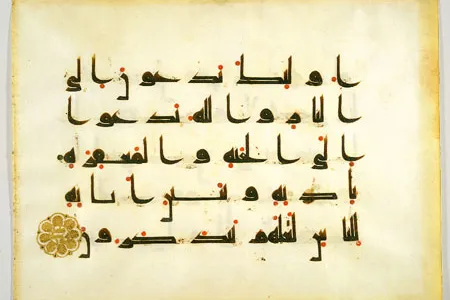 اولئك يدعون الى
النار والله يدعوا
الى الجنة والمغفرة
باذنه ويبين اياته
للناس لعلهم يتذكرون